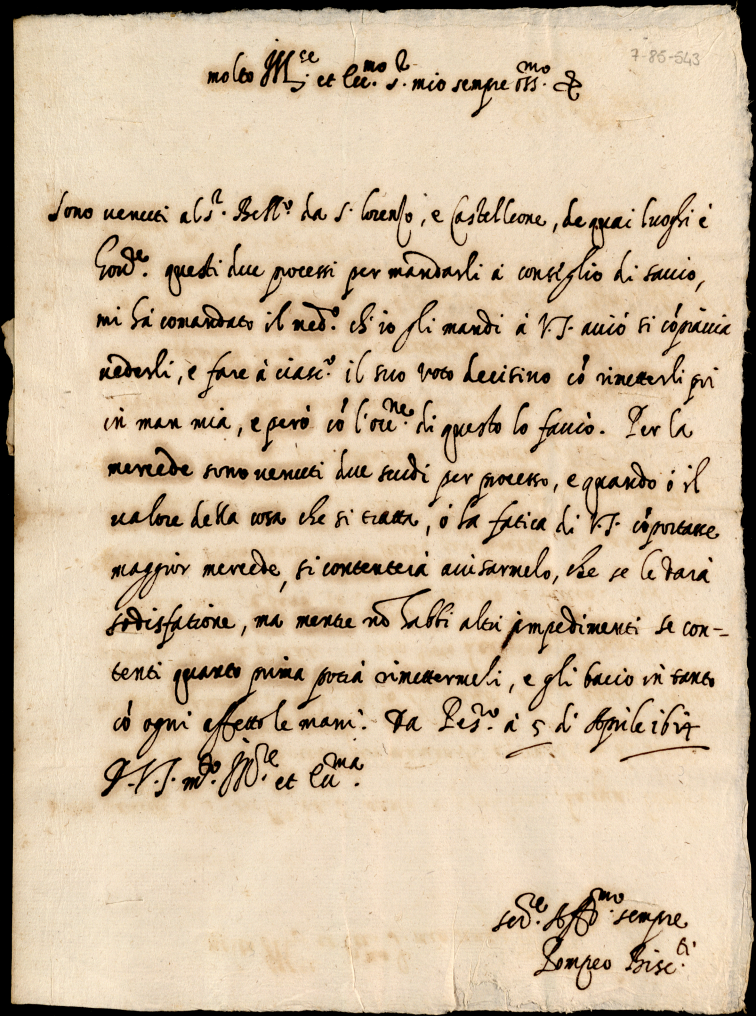 7-86-543
molto Ill.re et Ecc.mo S.r mio sempre oss.mo
Sono venuti al S.r Bell.o da S. Lorenzo, e Castelleone, de quai luoghi è
questi due processi per mandarli à consiglio di savio,
mi hà comandato il med.o ch'io gli mandi à V.S. acciò si cõpiaccia
vederli, e fare à ciasc.o il suo voto decisivo cõ rimetterli poi
in man mia, e però cõ l'occ.ne di questo lo faccio. Per la
mercede sono venuti due scudi per processo, e quando ò il
valore della cosa che si tratta, ò la fatica di V.S. cõportasse
maggior mercede, si contenterà avisarmelo, che se le darà
sodisfatione, ma mentre nõ habbi altri impedimenti se con-
tenti quanto prima potrà rimettermeli, e gli bacio in tanto
cõ ogni affetto le mani. Da Pes.ro à 5 di Aprile
D. V.S. m.to Ill.re et Ecc.ma
ser.re Aff.mo sempre
Pompeo Bisc.ti